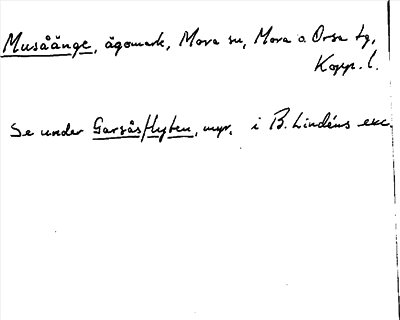 Musåänge, ägomark, Mora sn, Mora o. Orsa tg,
Kopp. l.
Se under Garsåsflyten, myr, i B. Lindéns exc.